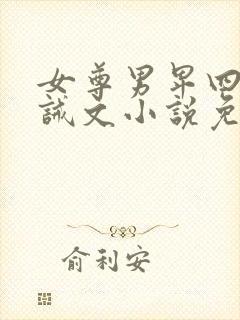 女尊男早四
誡文小說免
俞利安